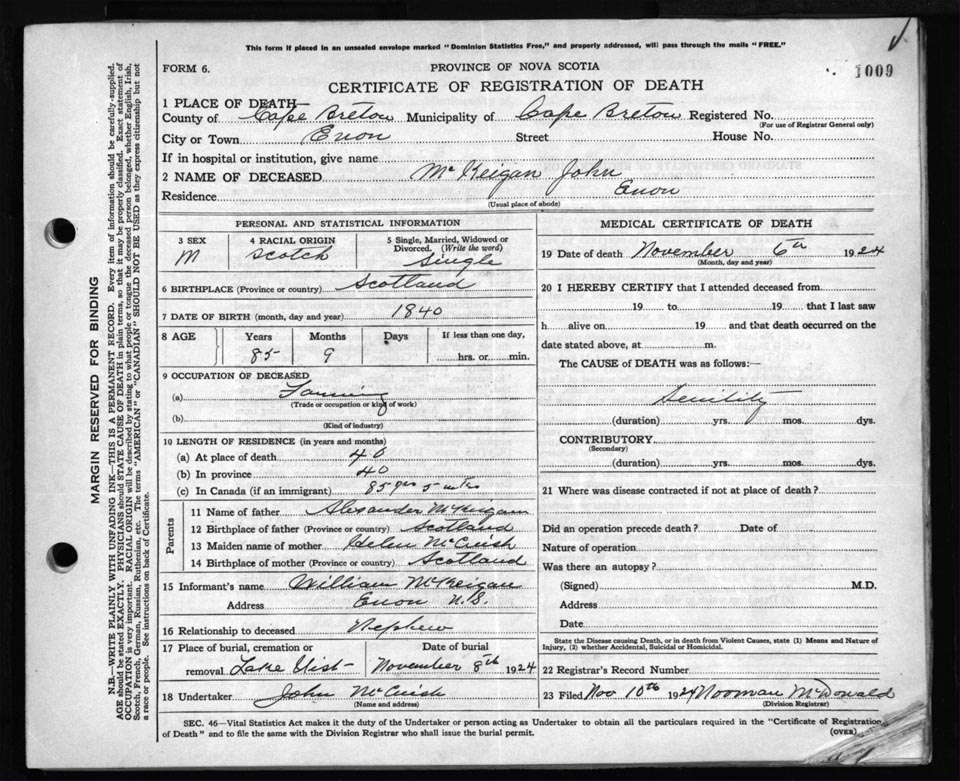 This form if placed in an unsealed envelope marked "Dominion Statistics Free," and properly addressed, will pass through the mails "FREE."
1009
FORM 6.
PROVINCE OF NOVA SCOTIA
CERTIFICATE OF REGISTRATION OF DEATH
1 PLACE OF DEATH—
County of Cape Breton Municipality of Cape Breton Registered No.
(For use of Registrar General only)
City or Town Enon Street House No.
If in hospital or institution, give name
2 NAME OF DECEASED McKeigan John
Residence Enon
(Usual place of abode)
PERSONAL AND STATISTICAL INFORMATION
3 SEX M
4 RACIAL ORIGIN Scotch
5 Single, Married, Widowed or Divorced. (Write the word) Single
6 BIRTHPLACE (Province or country) Scotland
7 DATE OF BIRTH (month, day and year) 1840
8 AGE Years Months Days If less than one day,
85 9 hrs. or min.
9 OCCUPATION OF DECEASED
(a) Farming
(Trade or occupation or kind of work)
(b)
(Kind of industry)
10 LENGTH OF RESIDENCE (in years and months)
(a) At place of death 40
(b) In province 40
(c) In Canada (if an immigrant) 85 yrs 5 mths
Parents
11 Name of father Alexander McKeigan
12 Birthplace of father (Province or country) Scotland
13 Maiden name of mother Helen McCuish
14 Birthplace of mother (Province or country) Scotland
15 Informant's name William McKeigan
Address Enon N.S.
16 Relationship to deceased Nephew
17 Place of burial, cremation or Date of burial
removal Lake November 8th 1924
18 Undertaker John McCuish
(Name and address)
MEDICAL CERTIFICATE OF DEATH
19 Date of death November 6th 1924
(Month, day and year)
20 I HEREBY CERTIFY that I attended deceased from
19 to 19 that I last saw
h alive on 19 and that death occurred on the
date stated above, at m.
The CAUSE of DEATH was as follows:—
Senility
(duration) yrs. mos. dys.
CONTRIBUTORY
(Secondary)
(duration) yrs. mos. dys.
21 Where was disease contracted if not at place of death?
Did an operation precede death? Date of
Nature of operation
Was there an autopsy?
(Signed) M.D.
Address
Date
State the Disease causing Death, or in death from Violent Causes, state (1) Means and Nature of
Injury, (2) whether Accidental, Suicidal or Homicidal.
22 Registrar's Record Number
23 Filed Nov 10th 1924 Norman McDonald
(Division Registrar)
SEC. 46—Vital Statistics Act makes it the duty of the Undertaker or person acting as Undertaker to obtain all the particulars required in the "Certificate of Registration
of Death" and to file the same with the Division Registrar who shall issue the burial permit.
(OVER)
MARGIN RESERVED FOR BINDING
N.B.—WRITE PLAINLY WITH UNFADING INK—THIS IS A PERMANENT RECORD. Every item of information should be carefully supplied.
AGE should be stated EXACTLY. PHYSICIANS should STATE CAUSE OF DEATH in plain terms, so that it may be properly classified. Exact statement of
OCCUPATION is very important. RACIAL ORIGIN will be described by stating to what people or tongue the deceased person belonged, whether English, Irish,
Scotch, French, German, Russian, Ruthenian, etc. The terms "AMERICAN" or "CANADIAN" SHOULD NOT BE USED as they express citizenship but not
a race or people. See instructions on back of Certificate.